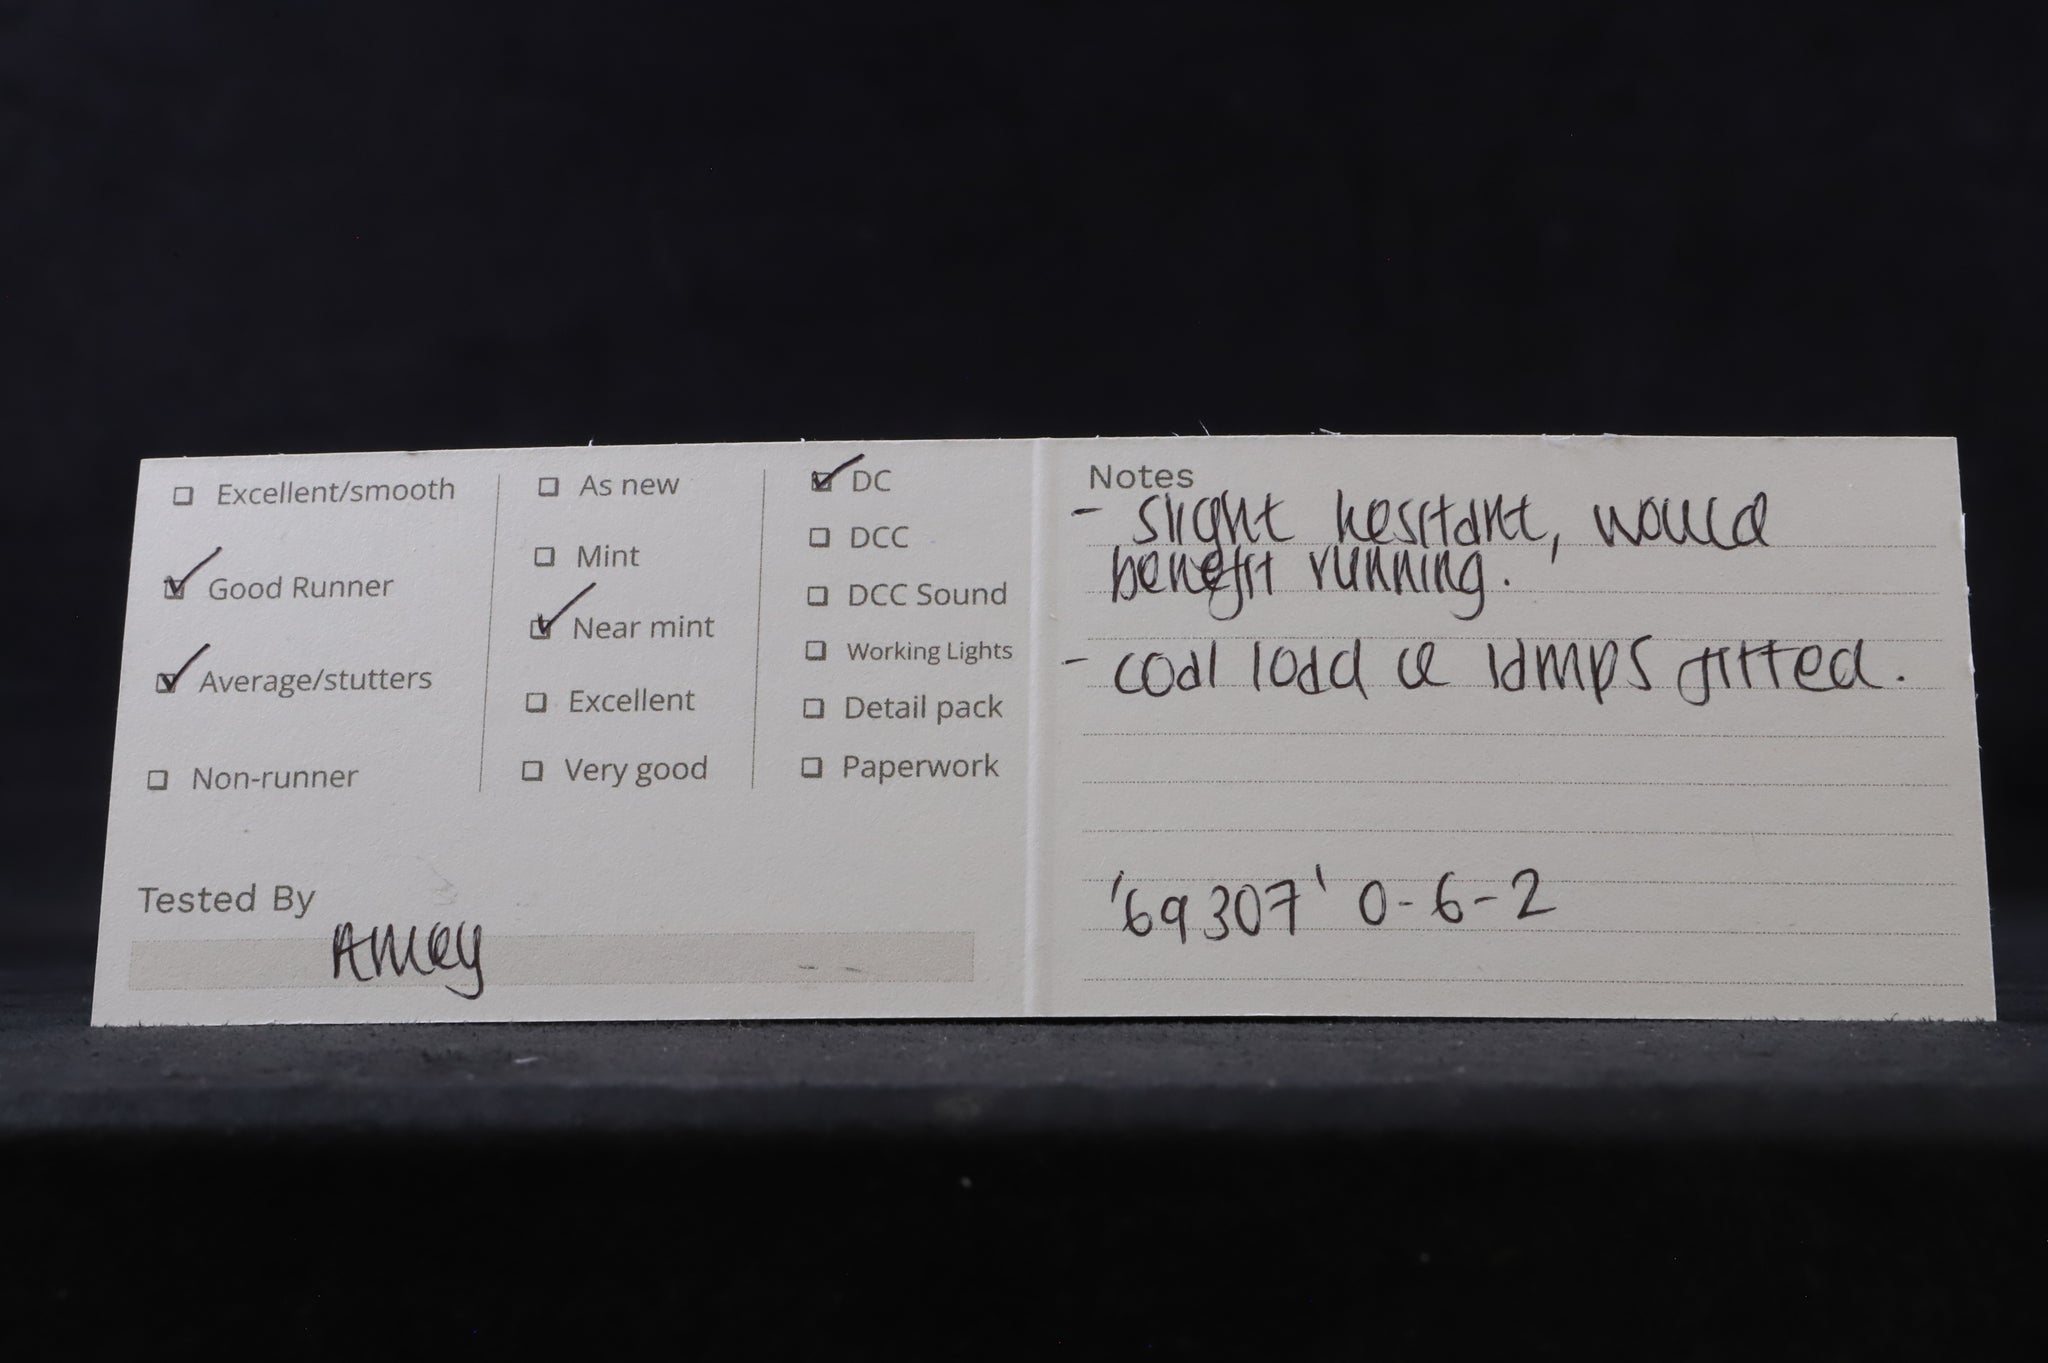 Excellent/smooth
Good Runner
Average/stutters
Non-runner
As new
Mint
Near mint
Excellent
Very good
DC
DCC
DCC Sound
Working Lights
Detail pack
Paperwork
Tested By
Notes
- slight hesitant, would
benefit running.
- coal load & lamps fitted.
'69307' 0-6-2